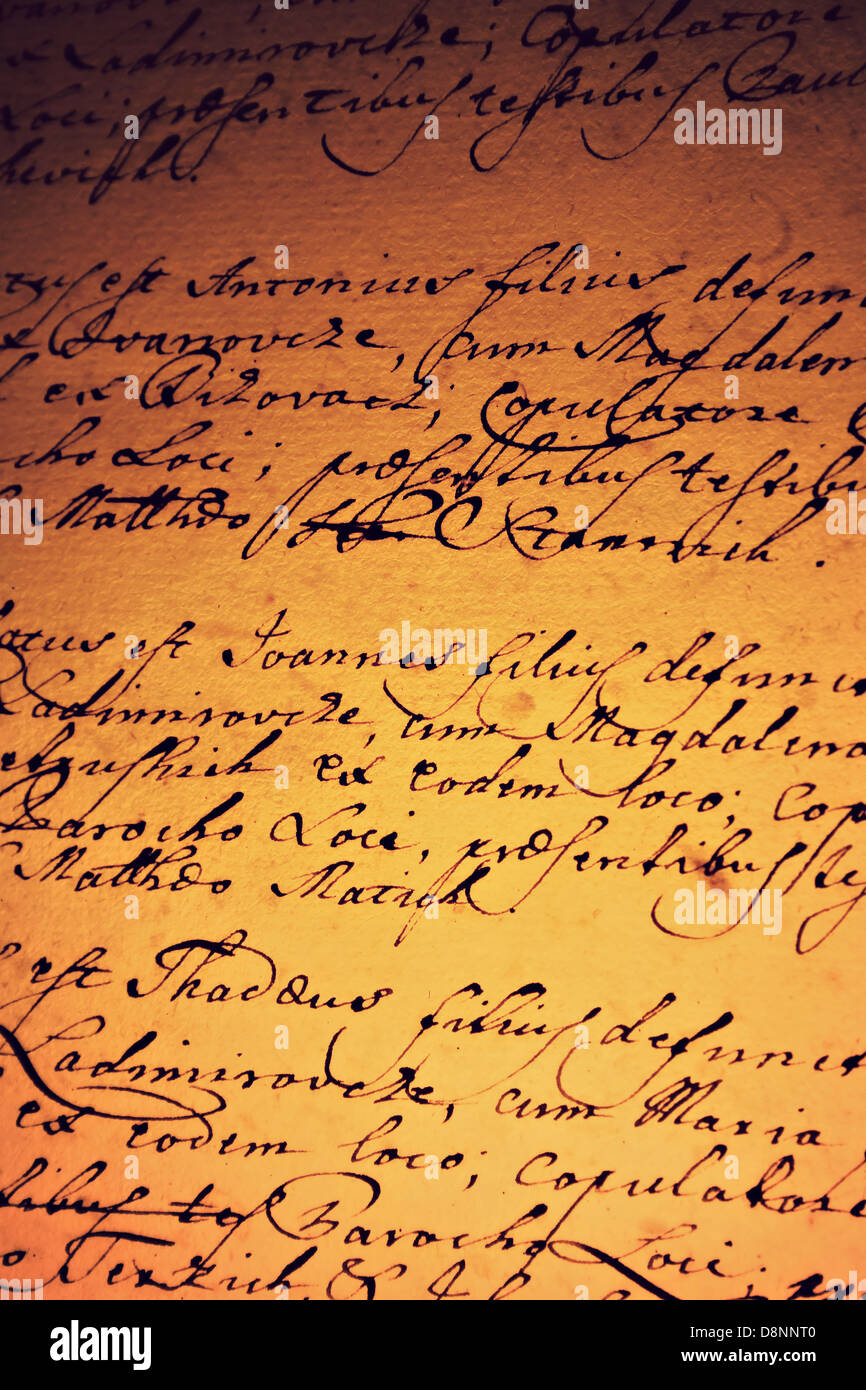 Ladimirovcze; Copulatore
Loci; præsentibus testibus Paul
est Antonius filius defun
Ivanovcze, cum Magdalen
ex Bizovacz; Copulatore
Loci; præsentibus testibu
Matthæo
atus est Joannes filius defunct
Ladimirovcze, cum Magdalena
ex eodem loco; Cop
Parocho Loci, præsentibus te
Matthæo Matish
est Thadæus filius defunct
Ladimirovcze, cum Maria
ex eodem loco; Copulatore
tibus tes Parocho Loci;
Terzich, &
alamy
Image ID: D8NNT0
www.alamy.com